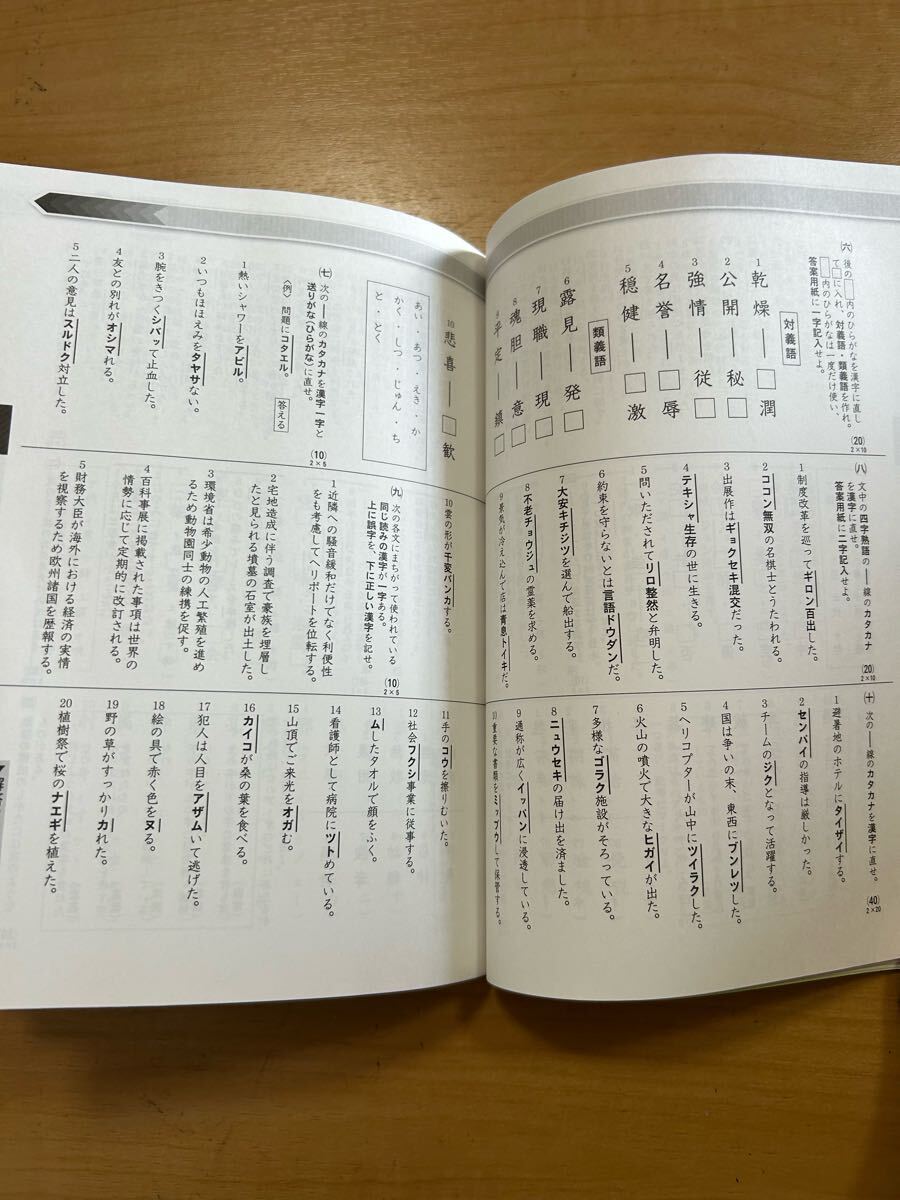 (六) 後の□内のひらがなを漢字に直して□に入れ、対義語・類義語を作れ。□内のひらがなは一度だけ使い、答案用紙に一字記入せよ。
(20)
2×10
対義語
1 乾燥 ― □潤
2 公開 ― 秘□
3 強情 ― 従□
4 名誉 ― □辱
5 穏健 ― □激
類義語
6 露見 ― 発□
7 現職 ― 現□
8 魂胆 ― 意□
9 平定 ― 鎮□
10 悲喜 ― □歓
あい・あつ・えき・か
かく・しつ・じゅん・ち
と・とく
(七) 次の――線のカタカナを漢字一字と送りがな(ひらがな)に直せ。
〈例〉 問題にコタエル。 答える
(10)
2×5
1 熱いシャワーをアビル。
2 いつもほほえみをタヤサない。
3 腕をきつくシバッて止血した。
4 友との別れがオシマれる。
5 二人の意見はスルドク対立した。
(八) 文中の四字熟語の――線のカタカナを漢字に直せ。答案用紙に二字記入せよ。
(20)
2×10
1 制度改革を巡ってギロン百出した。
2 ココン無双の名棋士とうたわれる。
3 出展作はギョクセキ混交だった。
4 テキシャ生存の世に生きる。
5 問いただされてリロ整然と弁明した。
6 約束を守らないとは言語ドウダンだ。
7 大安キチジツを選んで船出する。
8 不老チョウジュの霊薬を求める。
9 景気が冷え込んで店は青息トイキだ。
10 雲の形が千変バンカする。
(九) 次の各文にまちがって使われている同じ読みの漢字が一字ある。上に誤字を、下に正しい漢字を記せ。
(10)
2×5
1 近隣への騒音緩和だけでなく利便性をも考慮してヘリポートを位転する。
2 宅地造成に伴う調査で豪族を埋層したと見られる墳墓の石室が出土した。
3 環境省は希少動物の人工繁殖を進めるため動物園同士の練携を促す。
4 百科事展に掲載された事項は世界の情勢に応じて定期的に改訂される。
5 財務大臣が海外における経済の実情を視察するため欧州諸国を歴報する。
(十) 次の――線のカタカナを漢字に直せ。
(40)
2×20
1 避暑地のホテルにタイザイする。
2 センパイの指導は厳しかった。
3 チームのジクとなって活躍する。
4 国は争いの末、東西にブンレツした。
5 ヘリコプターが山中にツイラクした。
6 火山の噴火で大きなヒガイが出た。
7 多様なゴラク施設がそろっている。
8 ニュウセキの届け出を済ました。
9 通称が広くイッパンに浸透している。
10 重要な書類をミップウして保管する。
11 手のコウを擦りむいた。
12 社会フクシ事業に従事する。
13 ムしたタオルで顔をふく。
14 看護師として病院にツトめている。
15 山頂でご来光をオガむ。
16 カイコが桑の葉を食べる。
17 犯人は人目をアザムいて逃げた。
18 絵の具で赤く色をヌる。
19 野の草がすっかりカれた。
20 植樹祭で桜のナエギを植えた。